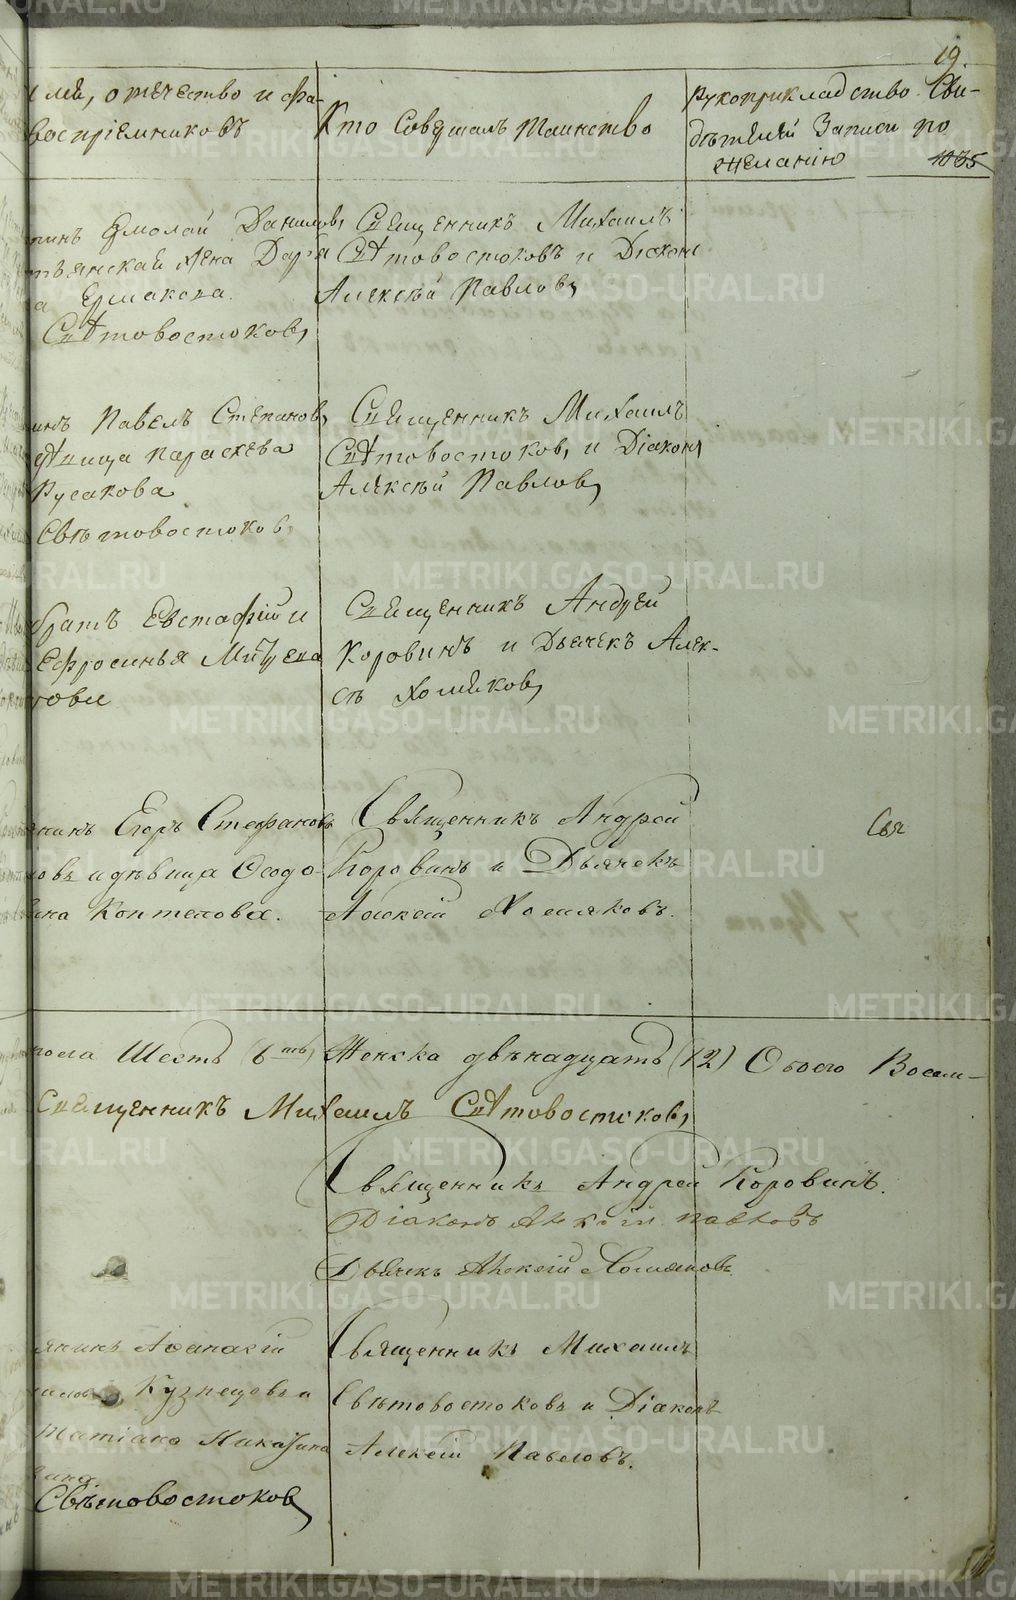 19.
отечество и фа-
воспріемниковъ
Кто Совершалъ Таинство
Рукоприкладство Сви-
дѣтелей Записи по
желанію
1835
Ермолай Данилов,
жена Дарья
Ермакова.
Свѣтовостоков,
Священникъ Михаилъ
Свѣтовостоковъ и Діаконъ
Алексѣй Павлов,
Павелъ Степанов,
дѣвица Параскева
Русакова
Свѣтовостоков,
Священникъ Михаилъ
Свѣтовостоков, и Діаконъ
Алексѣй Павлов,
братъ Евстафій и
Ефросинья
Священникъ Андрей
Коровинъ и Дьячекъ Алек-
сѣ Хомяков,
Егоръ Стефановъ
и дѣвица Ѳеодо-
Коптелова.
Священникъ Андрей
Коровинъ и Дьячекъ
Алексій Хомяковъ.
Свя
пола Шесть (6ть) Женска двѣнадцать (12) Обоего Восем-
Священникъ Михаилъ Свѣтовостоков,
Священникъ Андрей Коровинъ.
Діаконъ Алексій Павловъ
Дьячекъ Алексій Хомяковъ.
Аѳанасій
Кузнецовъ и
Татіана
Свѣтовостоков,
Священникъ Михаилъ
Свѣтовостоковъ и Діаконъ
Алексій Павловъ.
METRIKI.GASO-URAL.RU